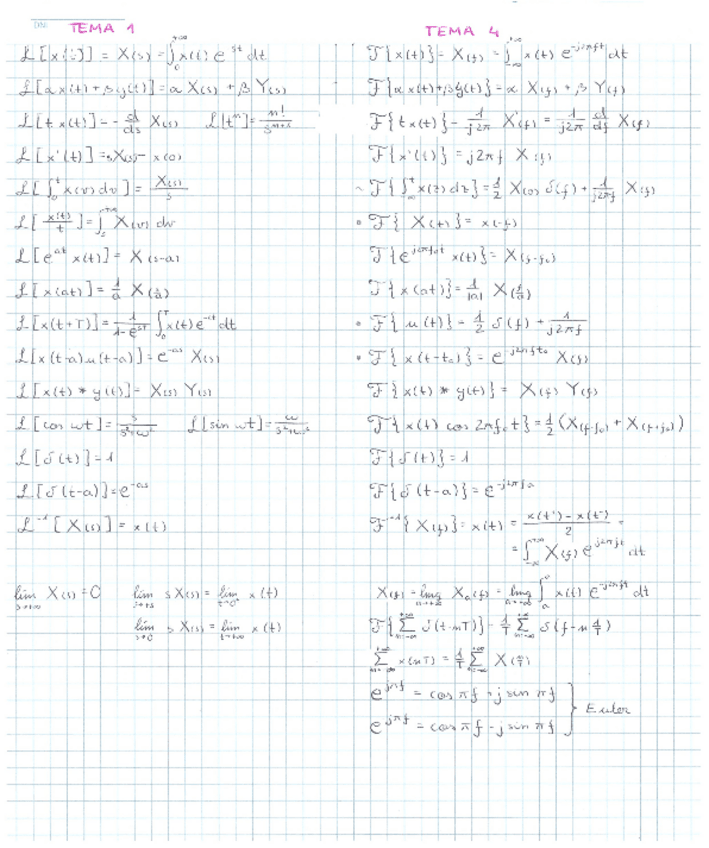 TEMA 1
ℒ[x(t)] = X(s) = ∫₀^{+∞} x(t) e^{-st} dt
ℒ[αx(t)+βy(t)] = α X(s) + β Y(s)
ℒ[t x(t)] = - d/ds X(s)    ℒ[tⁿ] = n!/s^{n+1}
ℒ[x'(t)] = sX(s) - x(0)
ℒ[∫₀^t x(v) dv] = X(s)/s
ℒ[x(t)/t] = ∫_s^{+∞} X(v) dv
ℒ[e^{at} x(t)] = X(s-a)
ℒ[x(at)] = 1/a X(s/a)
ℒ[x(t+T)] = 1/(1-e^{-sT}) ∫₀^T x(t) e^{-st} dt
ℒ[x(t-a)u(t-a)] = e^{-as} X(s)
ℒ[x(t) * y(t)] = X(s) Y(s)
ℒ[cos wt] = s/(s²+ω²)    ℒ[sin wt] = ω/(s²+ω²)
ℒ[δ(t)] = 1
ℒ[δ(t-a)] = e^{-as}
ℒ⁻¹[X(s)] = x(t)
lim_{s→+∞} X(s) = 0    lim_{s→+∞} s X(s) = lim_{t→0⁺} x(t)
lim_{s→0} s X(s) = lim_{t→+∞} x(t)
TEMA 4
ℱ{x(t)} = X(f) = ∫_{-∞}^{+∞} x(t) e^{-j2πft} dt
ℱ{αx(t)+βy(t)} = α X(f) + β Y(f)
ℱ{t x(t)} - 1/j2π X'(f) = 1/j2π d/df X(f)
ℱ{x'(t)} = j2πf X(f)
ℱ{∫_{-∞}^t x(z) dz} = 1/2 X(0) δ(f) + 1/j2πf X(f)
• ℱ{X(t)} = x(-f)
ℱ{e^{j2πf₀t} x(t)} = X(f-f₀)
ℱ{x(at)} = 1/|a| X(f/a)
• ℱ{u(t)} = 1/2 δ(f) + 1/j2πf
• ℱ{x(t-t₀)} = e^{-j2πft₀} X(f)
ℱ{x(t) * y(t)} = X(f) Y(f)
ℱ{x(t) cos 2πf₀t} = 1/2 (X(f-f₀) + X(f+f₀))
ℱ{δ(t)} = 1
ℱ{δ(t-a)} = e^{-j2πfa}
ℱ⁻¹{X(f)} = x(t) = x(t⁺)-x(t⁻)/2 =
= ∫_{-∞}^{+∞} X(f) e^{j2πft} dt
X(f) = lim_{a→+∞} X_a(f) = lim_{a→-∞} ∫_a^0 x(t) e^{-j2πft} dt
ℱ{∑_{n=-∞}^{+∞} δ(t-nT)} = 1/T ∑_{n=-∞}^{+∞} δ(f-n 1/T)
∑_{n=-∞}^{+∞} x(nT) = 1/T ∑_{n=-∞}^{+∞} X(n/T)
e^{jπf} = cos πf + j sin πf
e^{-jπf} = cos πf - j sin πf
} Euler